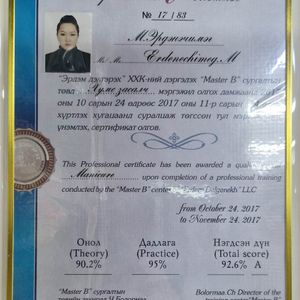 № 17 / 83
М.Эрдэнэчимэг
Mr / Ms Erdenechimeg.M
"Эрдэм дэлгэрэх" ХХК-ний дэргэдэх "Master B" сургалтын
төвд ... мэргэжил олгох дамжааны 2017
оны 10 сарын 24 өдрөөс 2017 оны 11-р сарын
хүртлэх хугацаанд суралцаж төгссөн тул
үнэмлэх, сертификат олгов.
This Professional certificate has been awarded a
Manicure upon completion of a professional training
conducted by the "Master B" center "Erdem Delgerekh" LLC
from October 24, 2017
to November 24, 2017
Онол Дадлага Нэгдсэн дүн
(Theory) (Practice) (Total score)
90.2% 95% 92.6% A
"Master B" сургалтын Bolormaa.Ch Director of the